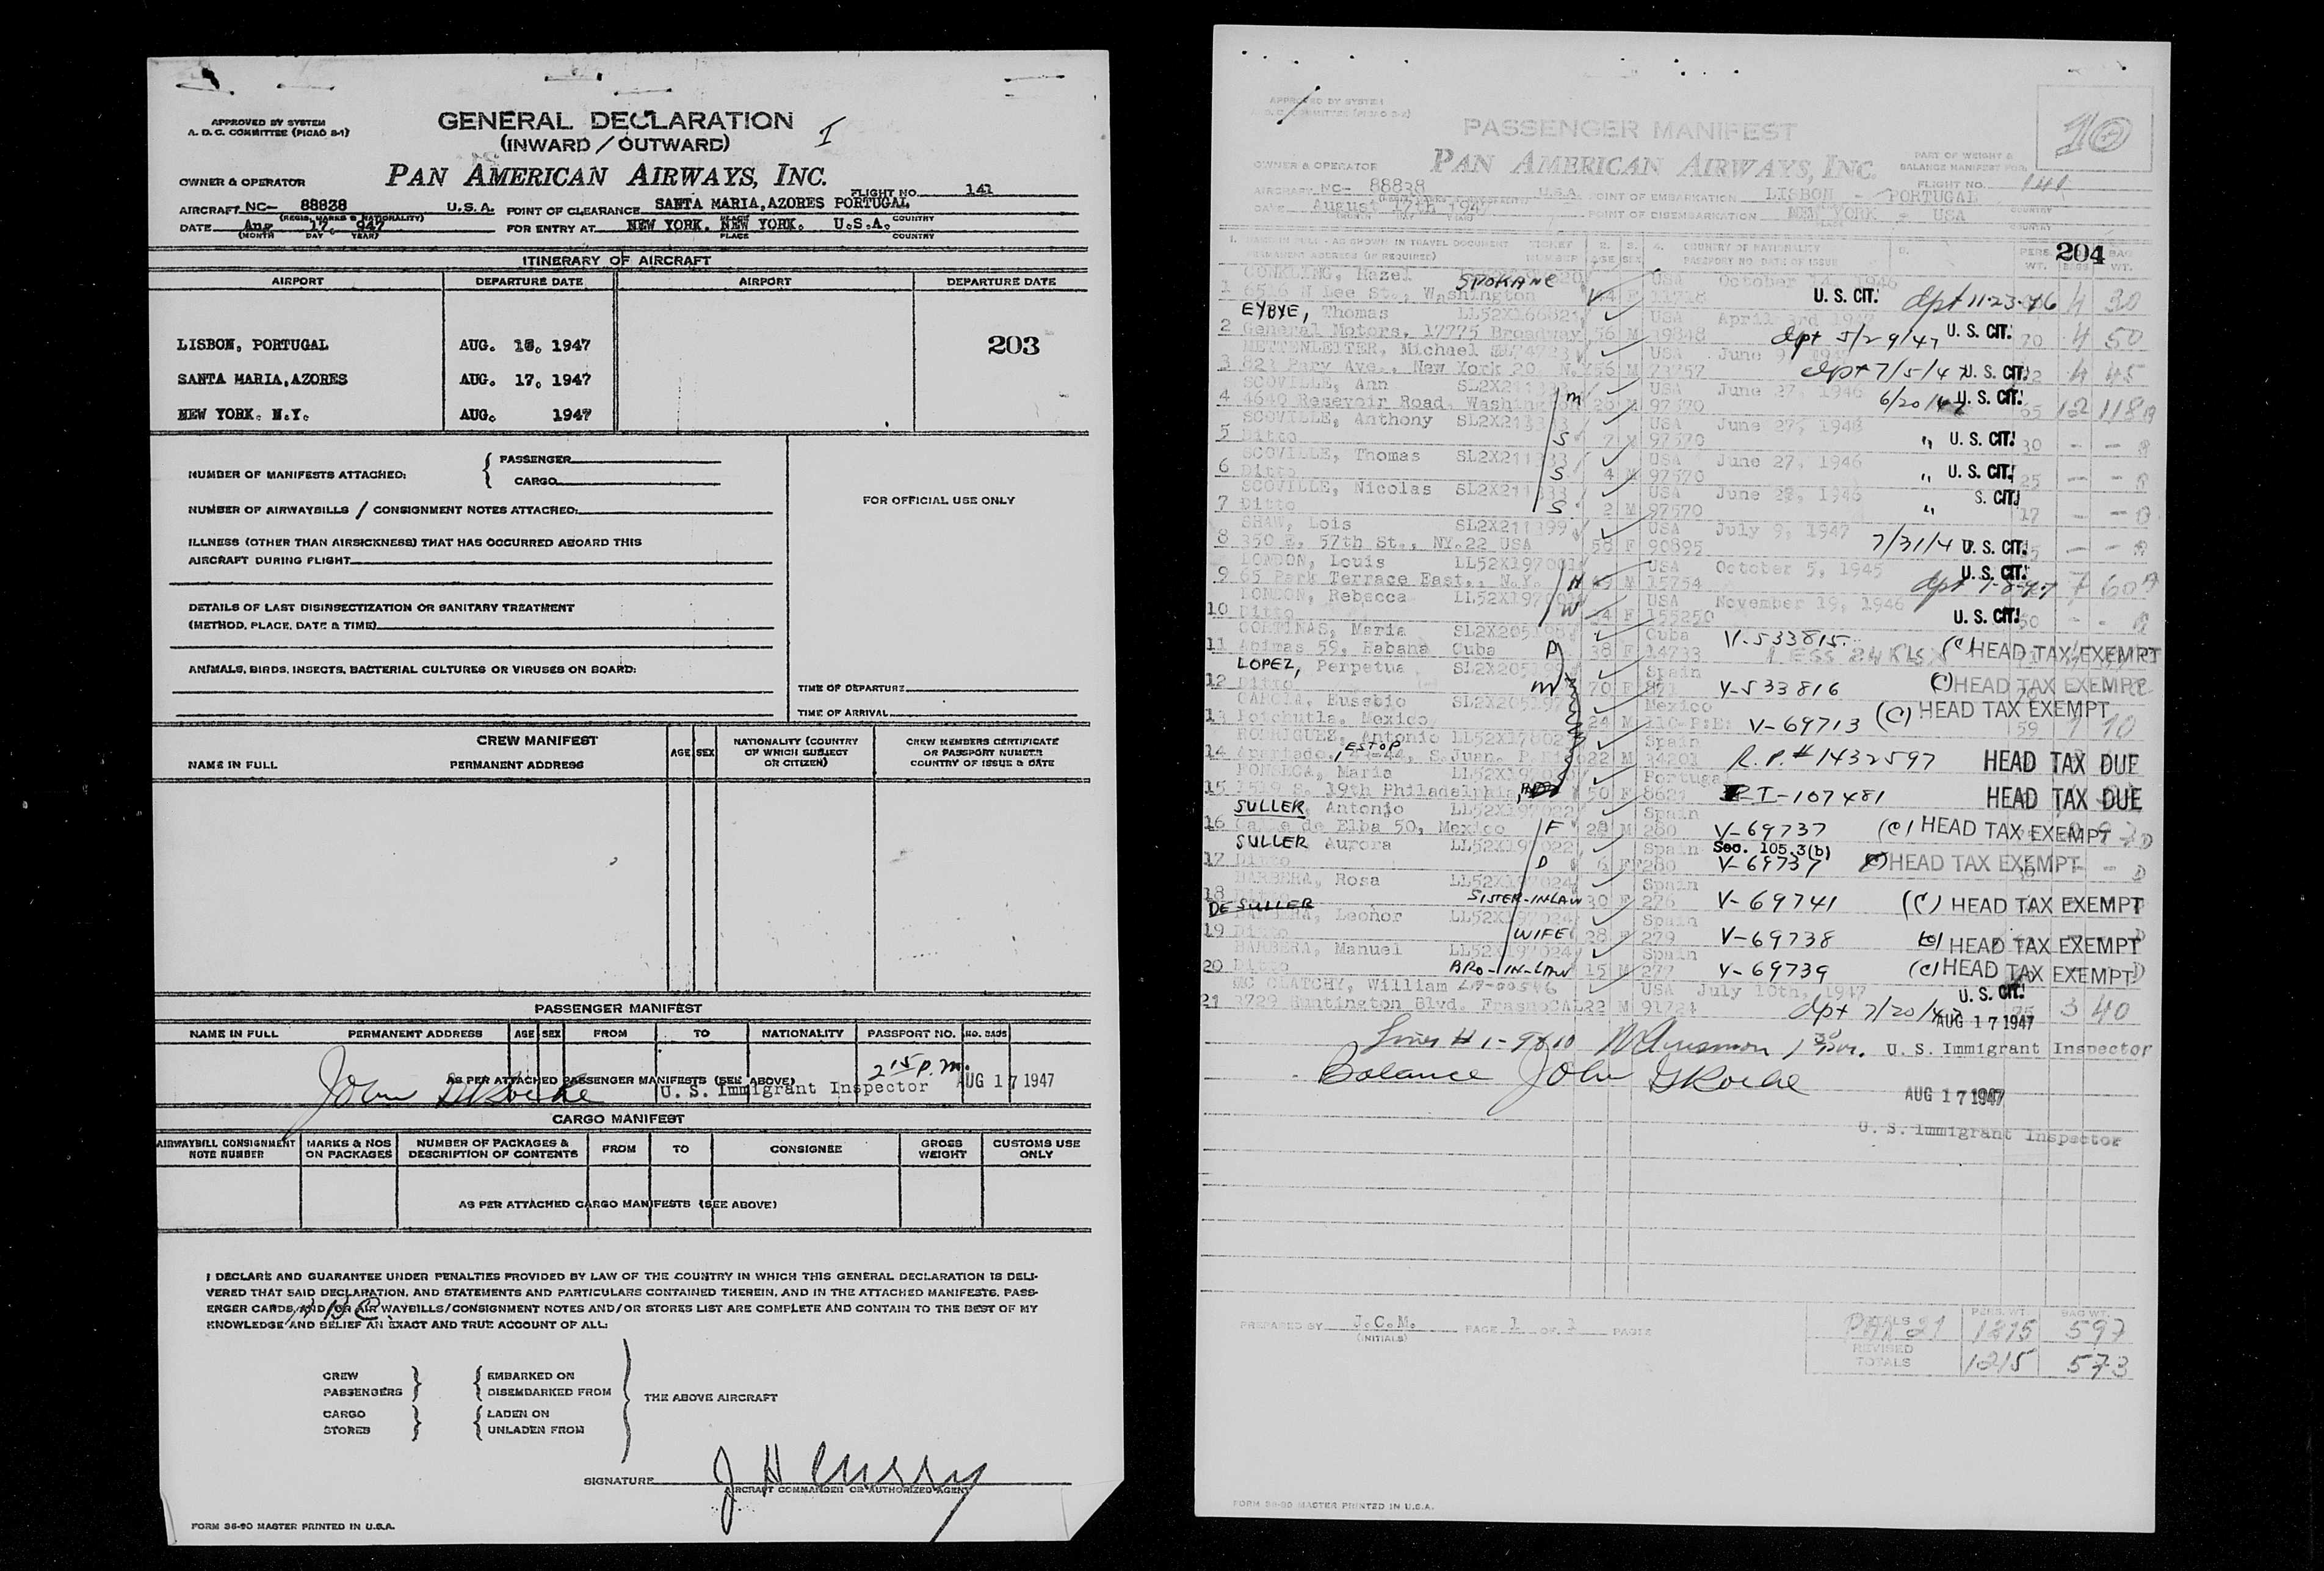 APPROVED BY SYSTEM
A. D. C. COMMITTEE (PICAO 8-1)
GENERAL DECLARATION
(INWARD / OUTWARD)
I
PAN AMERICAN AIRWAYS, INC.
OWNER & OPERATOR
FLIGHT NO. 141
AIRCRAFT NC- 88838 U.S.A. POINT OF CLEARANCE SANTA MARIA, AZORES PORTUGAL
(REGIS. MARKS & NATIONALITY) PLACE COUNTRY
DATE Aug 17, 947 FOR ENTRY AT NEW YORK, NEW YORK, U.S.A.
(MONTH DAY YEAR) PLACE COUNTRY
ITINERARY OF AIRCRAFT
AIRPORT DEPARTURE DATE AIRPORT DEPARTURE DATE
LISBON, PORTUGAL AUG. 16, 1947 203
SANTA MARIA, AZORES AUG. 17, 1947
NEW YORK, N.Y. AUG. 1947
NUMBER OF MANIFESTS ATTACHED: { PASSENGER
CARGO
FOR OFFICIAL USE ONLY
NUMBER OF AIRWAYBILLS / CONSIGNMENT NOTES ATTACHED:
ILLNESS (OTHER THAN AIRSICKNESS) THAT HAS OCCURRED ABOARD THIS
AIRCRAFT DURING FLIGHT
DETAILS OF LAST DISINSECTIZATION OR SANITARY TREATMENT
(METHOD, PLACE, DATE & TIME)
ANIMALS, BIRDS, INSECTS, BACTERIAL CULTURES OR VIRUSES ON BOARD:
TIME OF DEPARTURE
TIME OF ARRIVAL
CREW MANIFEST
NAME IN FULL PERMANENT ADDRESS AGE SEX NATIONALITY (COUNTRY OF WHICH SUBJECT OR CITIZEN) CREW MEMBERS CERTIFICATE OR PASSPORT NUMBER COUNTRY OF ISSUE & DATE
PASSENGER MANIFEST
NAME IN FULL PERMANENT ADDRESS AGE SEX FROM TO NATIONALITY PASSPORT NO. NO. BAGS
2 15 P.m.
AS PER ATTACHED PASSENGER MANIFESTS (SEE ABOVE)
John U. S. Immigrant Inspector AUG 17 1947
CARGO MANIFEST
AIRWAYBILL CONSIGNMENT NOTE NUMBER MARKS & NOS ON PACKAGES NUMBER OF PACKAGES & DESCRIPTION OF CONTENTS FROM TO CONSIGNEE GROSS WEIGHT CUSTOMS USE ONLY
AS PER ATTACHED CARGO MANIFESTS (SEE ABOVE)
I DECLARE AND GUARANTEE UNDER PENALTIES PROVIDED BY LAW OF THE COUNTRY IN WHICH THIS GENERAL DECLARATION IS DELI-
VERED THAT SAID DECLARATION, AND STATEMENTS AND PARTICULARS CONTAINED THEREIN, AND IN THE ATTACHED MANIFESTS, PASS-
ENGER CARDS, AND/OR AIR WAYBILLS/CONSIGNMENT NOTES AND/OR STORES LIST ARE COMPLETE AND CONTAIN TO THE BEST OF MY
KNOWLEDGE AND BELIEF AN EXACT AND TRUE ACCOUNT OF ALL:
CREW } { EMBARKED ON
PASSENGERS DISEMBARKED FROM
THE ABOVE AIRCRAFT
CARGO } { LADEN ON
STORES UNLADEN FROM
SIGNATURE J H Curry
AIRCRAFT COMMANDER OR AUTHORIZED AGENT
FORM 36-90 MASTER PRINTED IN U.S.A.
APPROVED BY SYSTEM
PASSENGER MANIFEST
10
OWNER & OPERATOR PAN AMERICAN AIRWAYS, INC. PART OF WEIGHT & BALANCE MANIFEST FOR:
FLIGHT NO. 141
AIRCRAFT NC- 88838 U.S.A. POINT OF EMBARKATION LISBON - PORTUGAL
DATE August 17th 1947 POINT OF DISEMBARKATION NEW YORK - USA
204
CONKLING, Hazel SPOKANE USA October 14, 1946
1 6516 N Lee St., Washington F 11718 U. S. CIT. dpt 11-23-46 4 30
EYBYE, Thomas LL52X166821 USA April 3rd 1947
2 General Motors, 17775 Broadway 56 M 39848 dpt 5/29/47 U. S. CIT. 4 50
METTENLEITER, Michael USA June 9, 1947
3 821 Park Ave., New York 20 N.Y 56 M 73757 dpt 7/5/47 U. S. CIT. 4 45
SCOVILLE, Ann SL2X211333 USA June 27, 1946
4 4640 Resevoir Road, Washington m 97570 6/20/47 U. S. CIT. 65 12 118
SCOVILLE, Anthony SL2X211333 USA June 27, 1946
5 Ditto S 7 M 97570 " U. S. CIT. 30 - -
SCOVILLE, Thomas SL2X211333 USA June 27, 1946
6 Ditto S 4 M 97570 " U. S. CIT. 25 - -
SCOVILLE, Nicolas SL2X211333 USA June 27, 1946
7 Ditto S 2 M 97570 " S. CIT. 17 - -
SHAW, Lois SL2X211399 USA July 9, 1947
8 350 E. 57th St., NY.22 USA 58 F 90895 7/31/4 U. S. CIT. - -
LONDON, Louis LL52X197001 USA October 5, 1945
9 65 Park Terrace East., N.Y. H M 15754 U. S. CIT. dpt 7 60
LONDON, Rebecca LL52X197001 USA November 19, 1946
10 Ditto W F 155250 U. S. CIT. 50 - -
CORTINAS, Maria SL2X205 Cuba V-533815
11 Animas 59, Habana Cuba D 38 F 14733 LESS 24 KLS (C) HEAD TAX EXEMPT
LOPEZ, Perpetua SL2X205 Spain
12 Ditto m 70 F 871 V-533816 (C) HEAD TAX EXEMPT
GARCIA, Eusebio SL2X205197 Mexico
13 Potchutla, Mexico 24 M 110 V-69713 (C) HEAD TAX EXEMPT 59 70
RODRIGUEZ, Antonio Spain
14 Apartado, ESTOP S. Juan, P. Rico 22 M 34203 R. P. # 1432597 HEAD TAX DUE
FONSECA, Maria Portugal
15 1519 S. 19th Philadelphia, 50 F 8621 I-107481 HEAD TAX DUE
SULLER, Antonio LL52X197022 Spain
16 Calle de Elba 50, Mexico F M 280 V-69737 (C) HEAD TAX EXEMPT
SULLER Aurora LL52X197022 Spain Sec. 105.3(b)
17 Ditto D 6 F 280 V-69737 (C) HEAD TAX EXEMPT - -
BARBERA, Rosa LL52X197024 Spain
18 Ditto SISTER-IN-LAW 30 F 276 V-69741 (C) HEAD TAX EXEMPT
DE SULLER
BARBERA, Leonor LL52X197024 Spain
19 Ditto WIFE 28 F 279 V-69738 (C) HEAD TAX EXEMPT
BARBERA, Manuel LL52X197024 Spain
20 Ditto BRO-IN-LAW 15 M 277 V-69739 (C) HEAD TAX EXEMPT
MC CLATCHY, William USA July 16th, 1947
21 3729 Huntington Blvd. FrasnoCAL 22 M 91724 dpt 7/20/47 U. S. CIT. 3 40
AUG 17 1947
Lines # 1-9 & 10 U. S. Immigrant Inspector
Balance John
AUG 17 1947
U. S. Immigrant Inspector
PREPARED BY J.C.M. PAGE 1 OF 1 PAGES
(INITIALS)
PERS. WT. BAG WT.
TOTALS 21 1215 597
REVISED TOTALS 1215 573
FORM 36-90 MASTER PRINTED IN U.S.A.